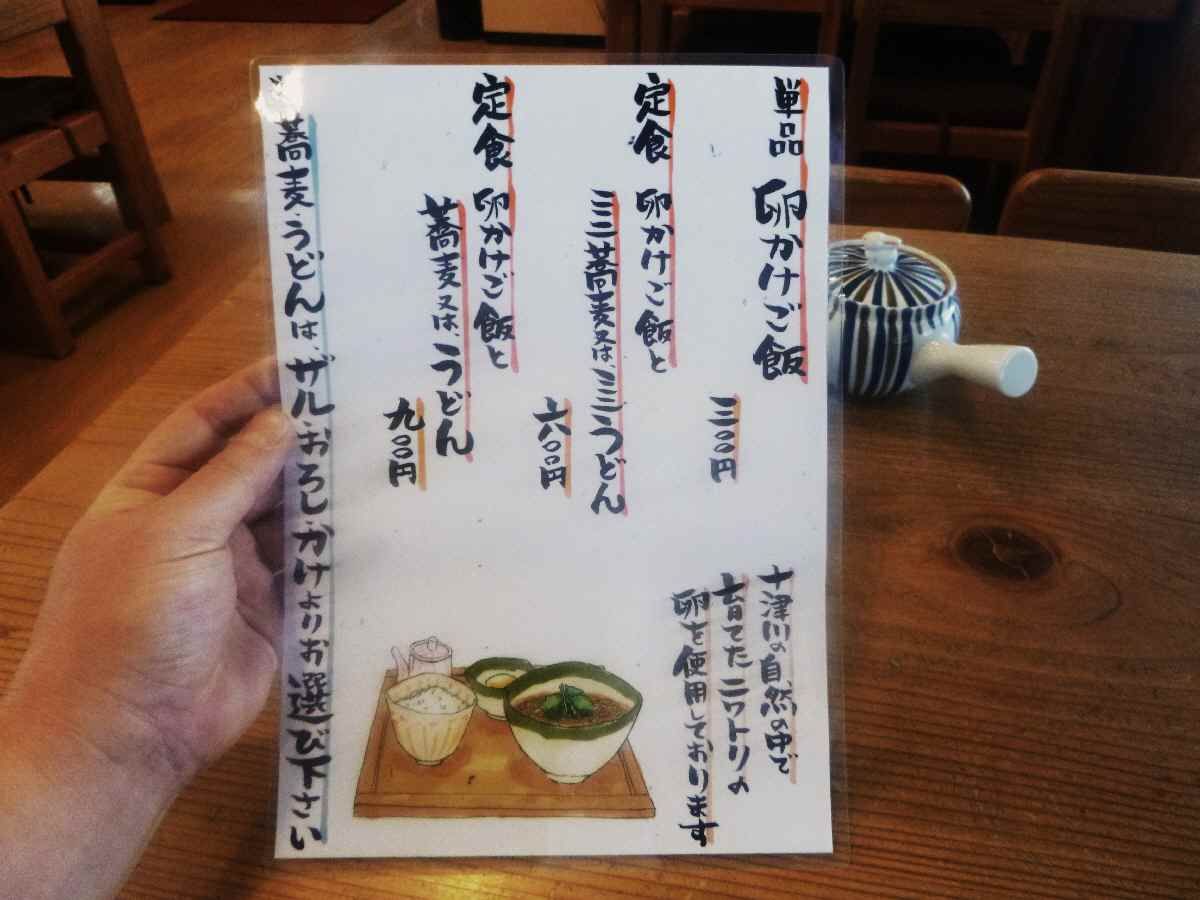 単品 卵かけご飯
三〇〇円
定食 卵かけご飯と
ミニ蕎麦又は、ミニうどん
六〇〇円
定食 卵かけご飯と
蕎麦又は、うどん
九〇〇円
蕎麦・うどんは、ザル・おろし・かけよりお選び下さい
十津川の自然の中で
育てたニワトリの
卵を使用しております